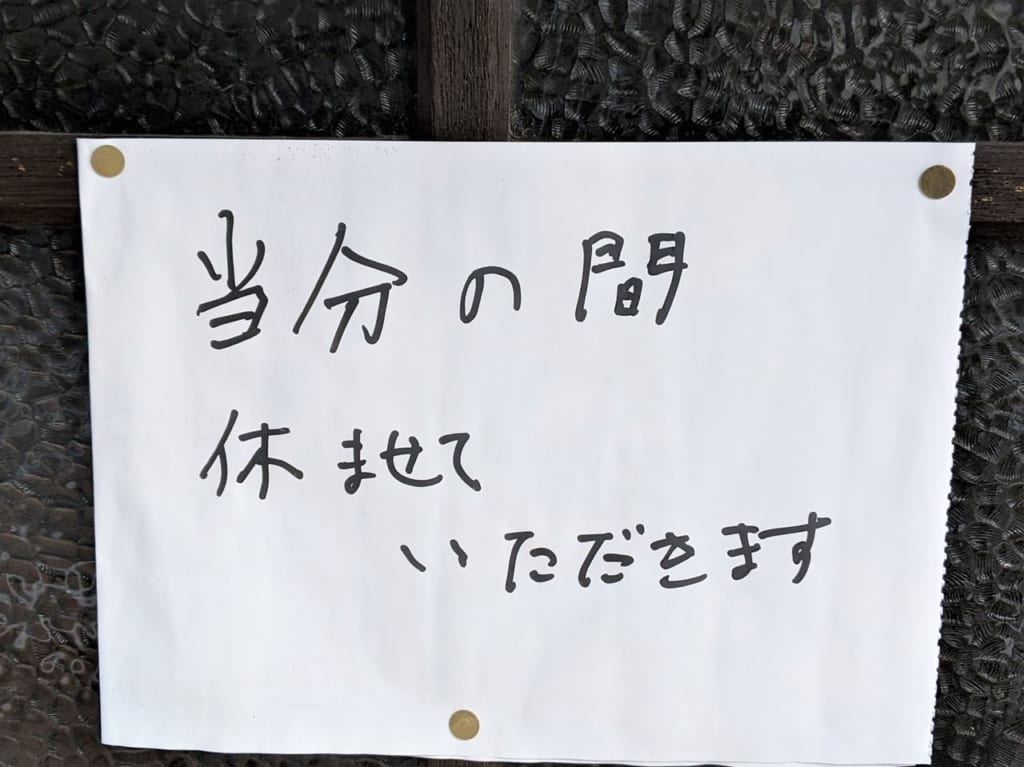 当分の間
休ませて
いただきます